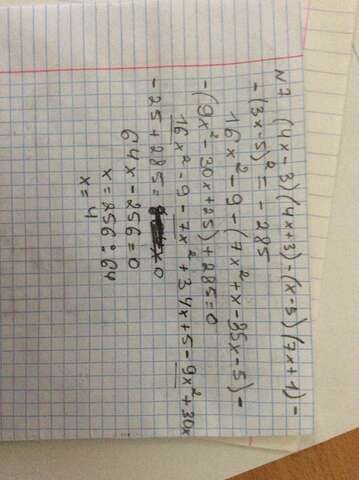 №7 (4x-3)(4x+3)-(x-5)(7x+1)-
-(3x-5)² = -285
16x²-9-(7x²+x-35x-5)-
-(9x²-30x+25)+285=0
16x²-9-7x²+34x+5-9x²+30x
-25+285=0
64x-256=0
x=256:64
x=4